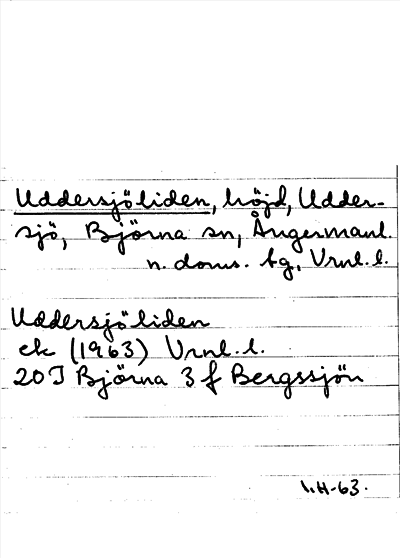 Uddersjöliden, höjd, Udder-
sjö, Björna sn, Ångermanl.
n. doms. tg, Vrnl. l.
Uddersjöliden
ek (1963) Vrnl. l.
20 I Björna 3 f Bergssjön
H-63.